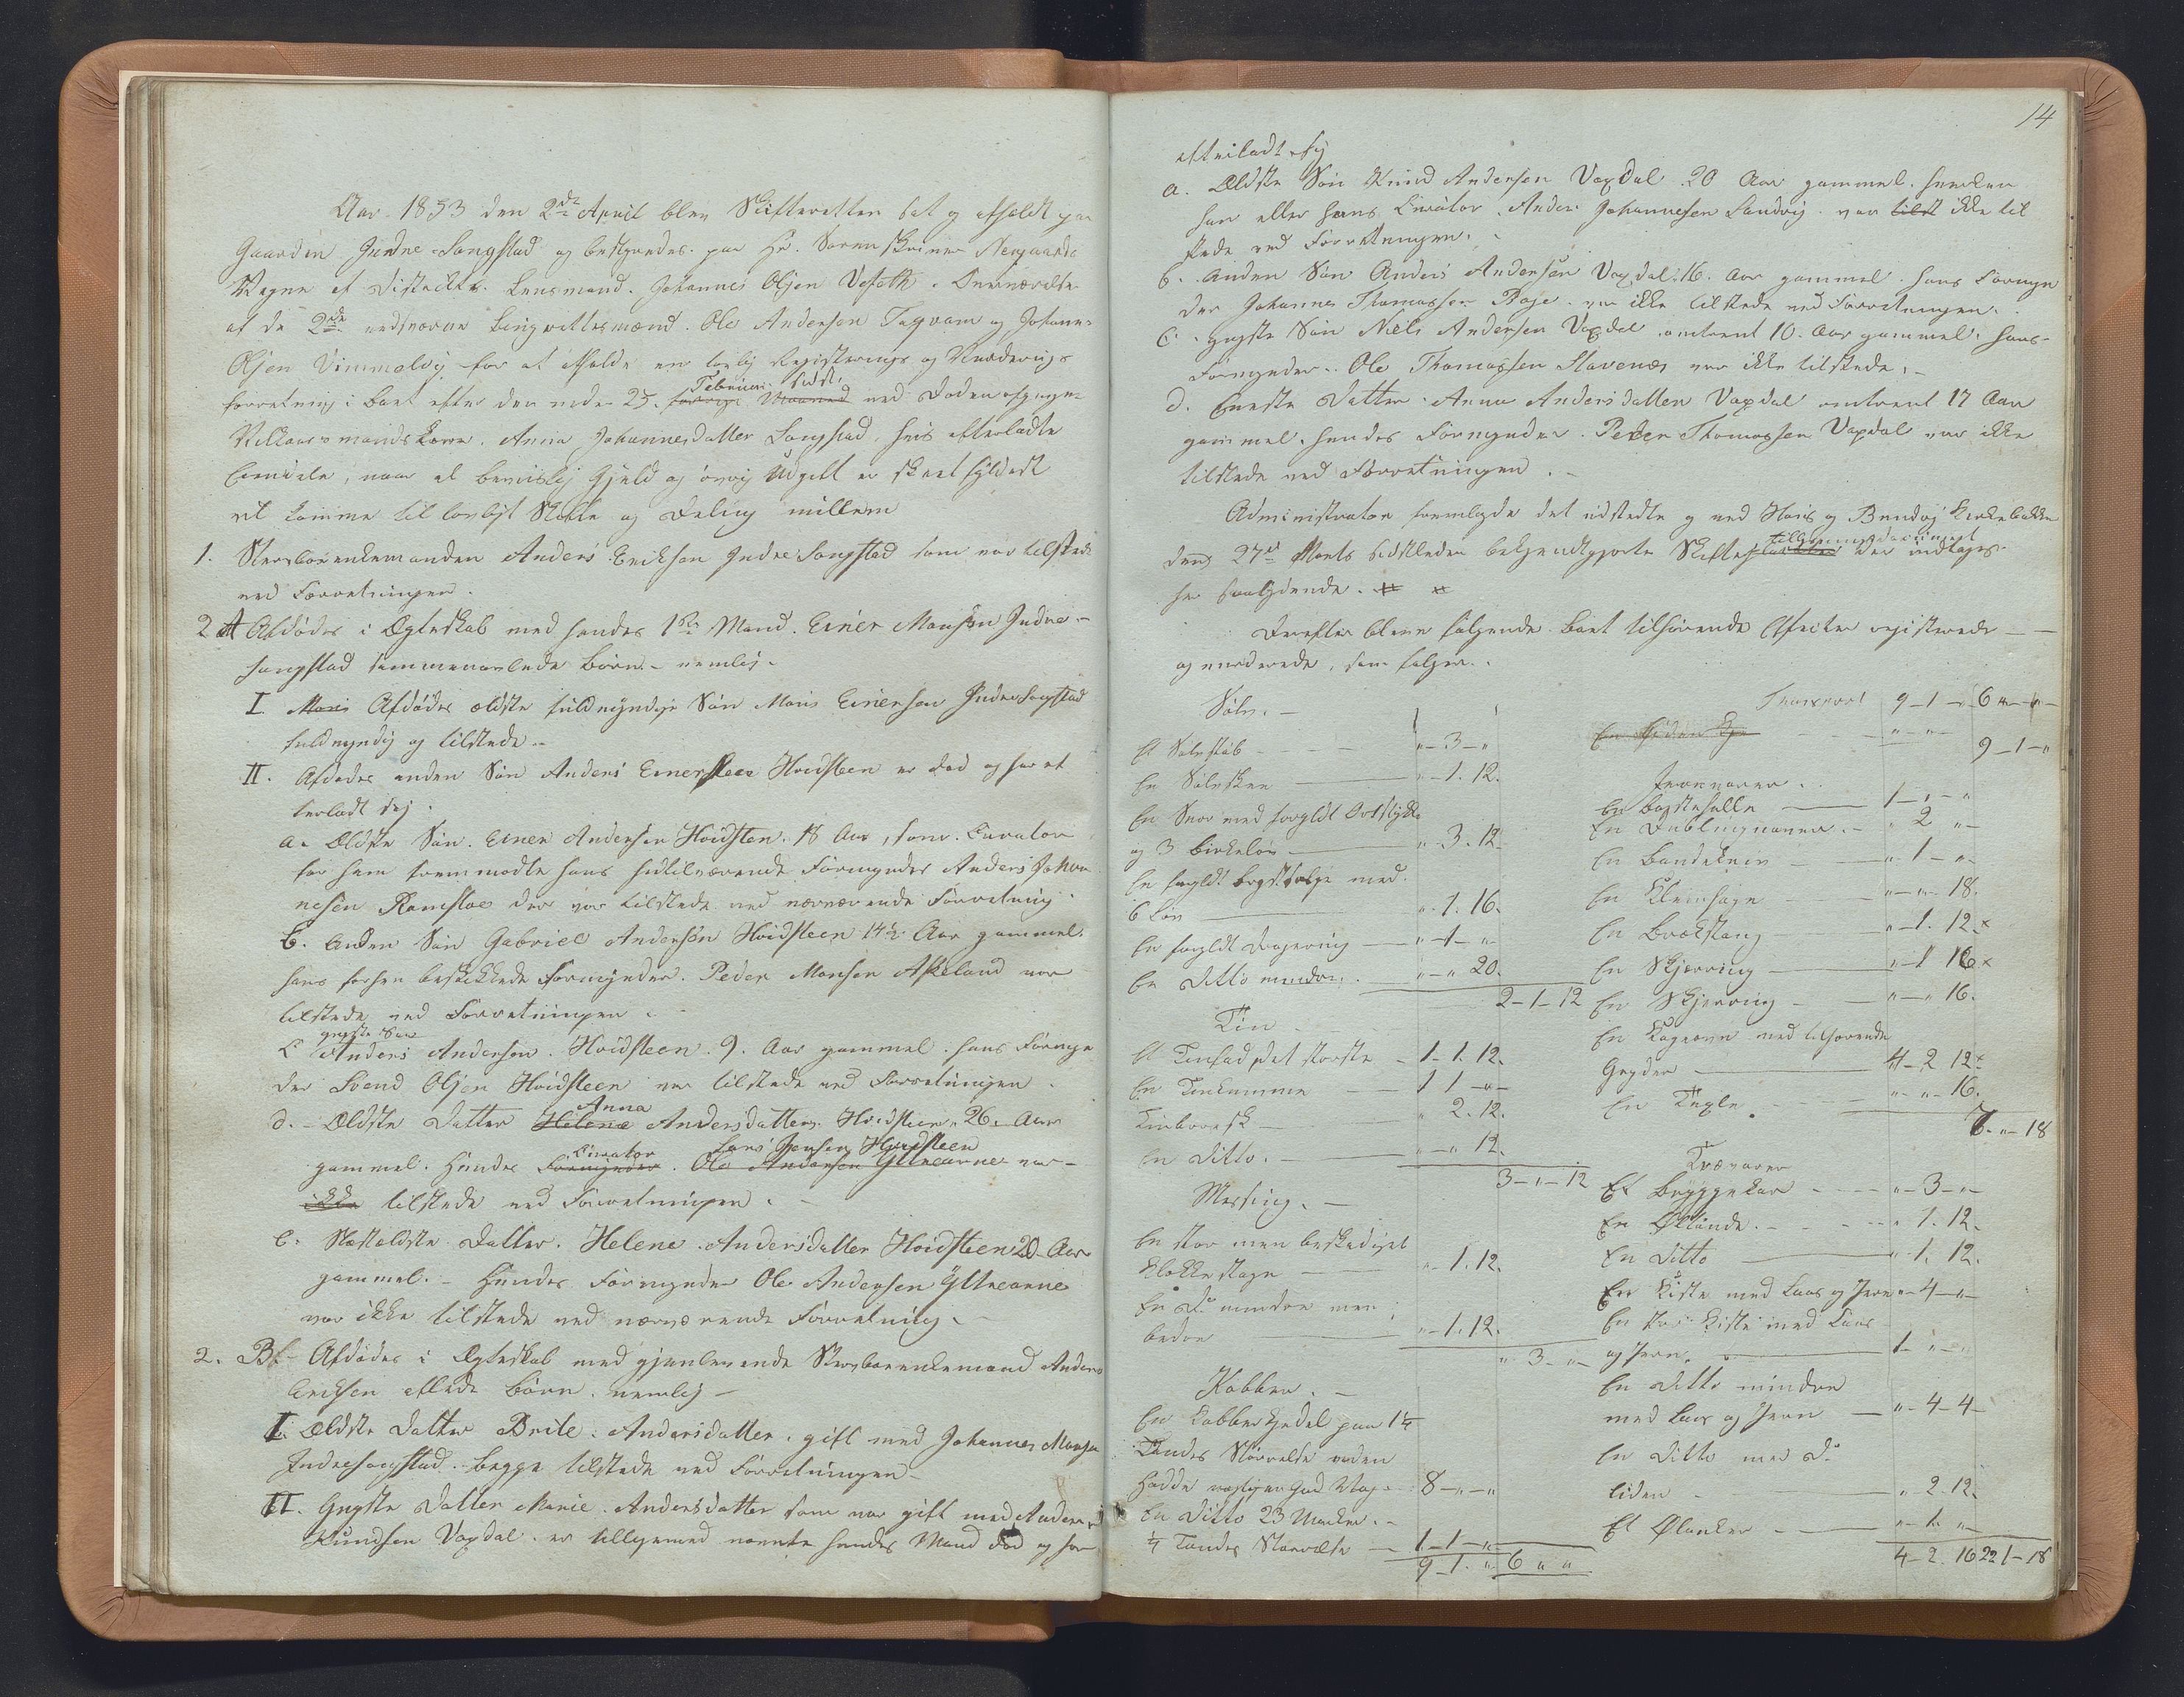 Aar 1853 den 2den April blev Skifteretten sat og afholdt paa
Gaarden Jndre Songstad og bestyredes paa Hr. Sorenskriver Neergaards
Vegne af Districtets Lensmand Johannes Olsen Veseth. Overværelse
af de 2de edsvorne Laugrettesmænd Ole Andersen Tagvam og Johannes
Olsen Vimmelvig for at afholde en lovlig Registrerings og Vurderings
Februar sidst.
forretning i Boet efter den under 25. forrige Maaned ved Døden afgangne
Vilkaarsmandskone Anna Johannesdatter Songstad, hvis efterladte
Eiendele, naar al beviislig Gjæld og øvrig Udgift er skeet Fyldest
vil komme til lovligt Skifte og Deling mellem
1. Sterboenkemanden Anders Eriksen Jndre Songstad som var tilstede
ved Forretningen.
2 A Afdødes i Ægteskab med hendes 1ste Mand Einer Monsen Jndre
Songstad sammenavlede Børn nemlig
I. Mons Afdødes ældste fuldmyndige Søn Mons Einersen Jndre Songstad
fuldmyndig og tilstede.
II. Afdødes anden Søn Anders Einersen Hvidsteen er død og har ef
terladt sig.
a. Ældste Søn Einer Andersen Hvidsten 18 Aar, som Curator
for ham fremmødte hans hidtilværende Formynder Anders Johan
nesen Ramsløe der var tilstede ved nærværende Forretning.
b. Anden Søn Gabriel Andersøn Hvidsteen 14½ Aar gammel.
hans forhen beskikkede Formynder Peder Monsen Askeland var
tilstede ved Forretningen.
yngste Søn
c Anders Andersen Hvidsteen 9. Aar gammel. hans Formyn
der Svend Olsen Hvidsteen var tilstede ved Forretningen.
Anna
d. Ældste Datter Helene Andersdatter Hvidsteen 26. Aar
Curator Lars Jensen Hvidsteen
gammel. Hendes Formynder. Ole Andersen Yttrearne var
ikke tilstede ved Forretningen.
e. Næstældste Datter. Helene Andersdatter Hvidsteen 20 Aar
gammel. Hendes Formynder Ole Andersen Yttrearne
var ikke tilstede ved nærværende Forretning.
2. B Afdødes i Ægteskab med gjenlevende Sterboenkemand Anders
Eriksen aflede Børn nemlig
I. Ældste Datter Brite Andersdatter, gift med Johannes Monsen
Jndresongstad. begge tilstede ved Forretningen
II. Yngste Datter Marie Andersdatter som var gift med Anders
Knudsen Vaxdal er tilligemed nævnte hendes Mand død og har
14
efterladt sig
a. Ældste Søn Knud Andersen Vaxdal 20 Aar gammel. hverken
han eller hans Curator Anders Johannesen Sandvig var tilst ikke til
stede ved Forretningen.
b. Anden Søn Anders Andersen Vaxdal 16. Aar gammel hans Formyn
der Johannes Thomassen Boge var ikke tilstede ved Forretningen.
c. yngste Søn Niels Andersen Vaxdal omtrent 10. Aar gammel. hans
Formynder Ole Thomassen Stavenæs var ikke tilstede.
d. Eneste Datter Anna Andersdatter Vaxdal omtrent 17 Aar
gammel. hendes Formynder Peder Thomassen Vaxdal var ikke
tilstede ved Forretningen.
Administrator fremlagde det udstedte og ved Hous og Bruvig Kirkebakke
den 27de Marts sidstleden bekjendtgjorte Skifte der indtages
her saalydende.
Derefter bleve følgende Boet tilhørende Effecter registrerede
og vurderede, som følger.
Sølv.
Et Sølvstøb " 3 "
En Sølvskee " 1. 12.
En Snor med forgyldt Ortstykke
og 3 Birkeløv " 3. 12
En forgyldt Brystsølje med
6 Løv " 1. 16.
En forgyldt Dragering " 1 "
En Ditto mindre " " 20.
2-1-12
Tin
Et Tinfad det største 1. 1. 12.
En Tinkumme 1 1 "
Tinbræsk " 2. 12.
En Ditto. " " 12.
3-"-12
Messing.
En stor men beskadiget
Klokkestage " 1. 12.
En Do mindre men
bedre " 1. 12.
" 3 "
Kobber.
En Kobberkjedel paa 1¼
Tøndes Størrelse uden
8 " "
En Ditto 23 Marker.
¼ Tøndes Størrelse 1 1 "
9 1 " 6 " "
Transport 9-1-" 6 " "
" " "
9-1-"
Jernvarer.
En Bagstehelle 1 " "
En Dublingnaver " 2 "
En Bandkniv " 1 "
En Kleinsage " " 18.
En Brækstang " 1. 12 x
En Skjæring " 1 16 x
En Skjæring " " 16.
En Kageovn med tilhørende
Gryder 4 2 12 x
En Texle " " 16.
8. " 18
Trævarer
Et Bryggekar " 3 "
En Øltønde. " 1. 12.
En Ditto " 1. 12.
En Kiste med Laas og Jern " 4 "
En stor Kiste med Laas
og Jern. 1 " "
En Ditto mindre
med Laas og Jern " 4 4
En Ditto med Do
liden " 2 12.
Et Ølanker " 1. "
4-2. 16 22 1-18